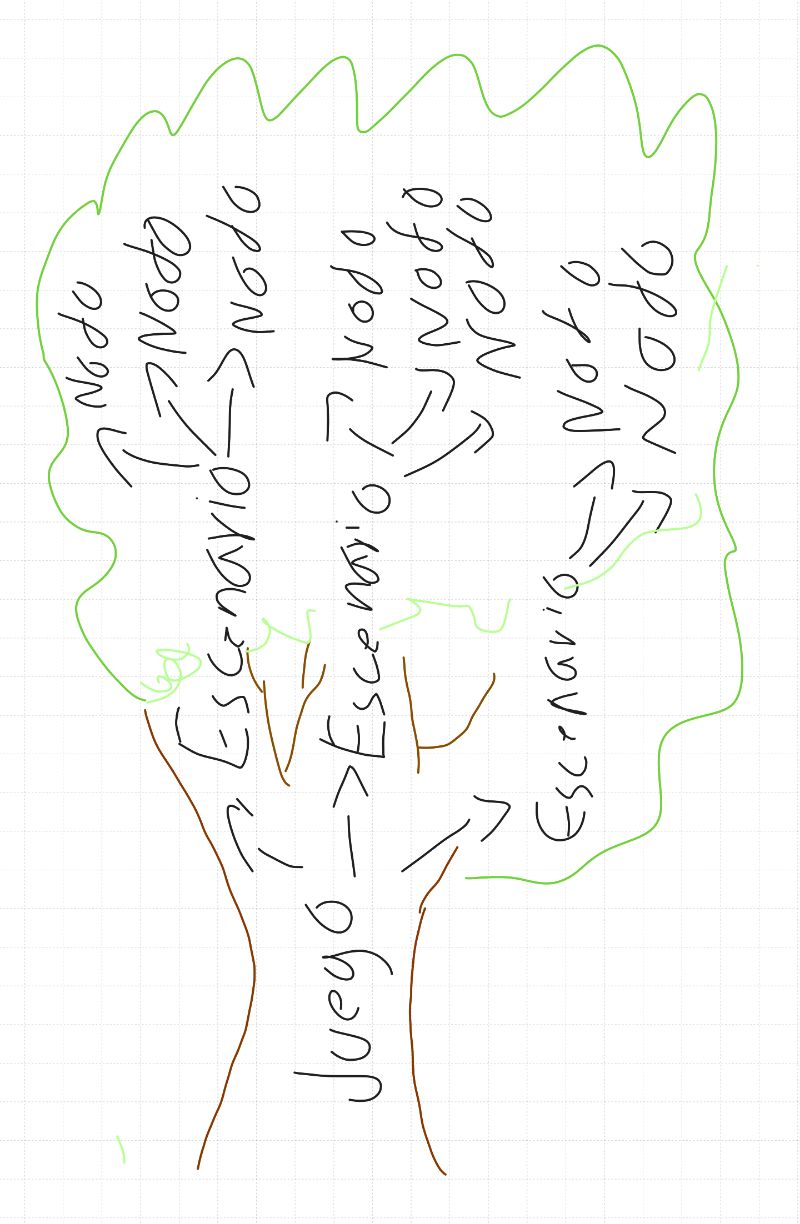 Juego
Escenario
Nodo
Nodo
Nodo
Escenario
Nodo
Nodo
Nodo
Escenario
Nodo
Nodo